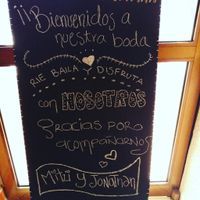 ¡¡¡Bienvenidos a
nuestra boda
RIE BAILA Y DISFRUTA
con NOSOTROS
Gracias por
acompañarnos
y Jonathan